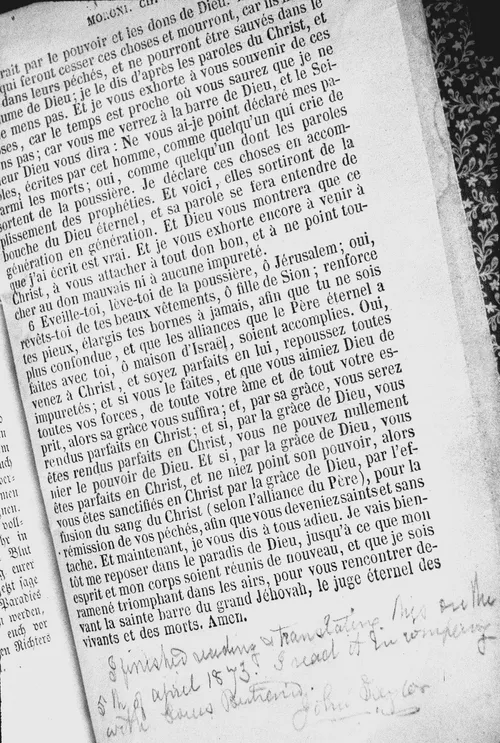 MORONI. CH.
rait par le pouvoir et les dons de Dieu.
qui feront cesser ces choses et mourront, car ils
dans leurs péchés, et ne pourront être sauvés dans le
ume de Dieu; je le dis d'après les paroles du Christ, et
e mens pas. Et je vous exhorte à vous souvenir de ces
ses, car le temps est proche où vous saurez que je ne
ns pas; car vous me verrez à la barre de Dieu, et le Sei-
eur Dieu vous dira: Ne vous ai-je point déclaré mes pa-
les, écrites par cet homme, comme quelqu'un qui crie de
armi les morts; oui, comme quelqu'un dont les paroles
sortent de la poussière. Je déclare ces choses en accom-
plissement des prophéties. Et voici, elles sortiront de la
bouche du Dieu éternel, et sa parole se fera entendre de
génération en génération. Et Dieu vous montrera que ce
que j'ai écrit est vrai. Et je vous exhorte encore à venir à
Christ, à vous attacher à tout don bon, et à ne point tou-
cher au don mauvais ni à aucune impureté.
6 Éveille-toi, lève-toi de la poussière, ô Jérusalem; oui,
revêts-toi de tes beaux vêtements, ô fille de Sion; renforce
tes pieux, élargis tes bornes à jamais, afin que tu ne sois
plus confondue, et que les alliances que le Père éternel a
faites avec toi, ô maison d'Israël, soient accomplies. Oui,
venez à Christ, et soyez parfaits en lui, repoussez toutes
impuretés; et si vous le faites, et que vous aimiez Dieu de
toutes vos forces, de toute votre âme et de tout votre es-
prit, alors sa grâce vous suffira; et, par sa grâce, vous serez
rendus parfaits en Christ; et si, par la grâce de Dieu, vous
êtes rendus parfaits en Christ, vous ne pouvez nullement
nier le pouvoir de Dieu. Et si, par la grâce de Dieu, vous
êtes parfaits en Christ, et ne niez point son pouvoir, alors
vous êtes sanctifiés en Christ par la grâce de Dieu, par l'ef-
fusion du sang du Christ (selon l'alliance du Père), pour la
rémission de vos péchés, afin que vous deveniez saints et sans
tache. Et maintenant, je vous dis à tous adieu. Je vais bien-
tôt me reposer dans le paradis de Dieu, jusqu'à ce que mon
esprit et mon corps soient réunis de nouveau, et que je sois
ramené triomphant dans les airs, pour vous rencontrer de-
vant la sainte barre du grand Jéhovah, le juge éternel des
vivants et des morts. Amen.
I finished reading & translating this on the
5th of april 1873. I read it in company
with Louis Bertrand.
John Taylor
en
m
uch
ver-
men
nen.
voll-
hr in
Blut
eurer
Jetzt sage
Paradies
werden,
euch vor
en Richters